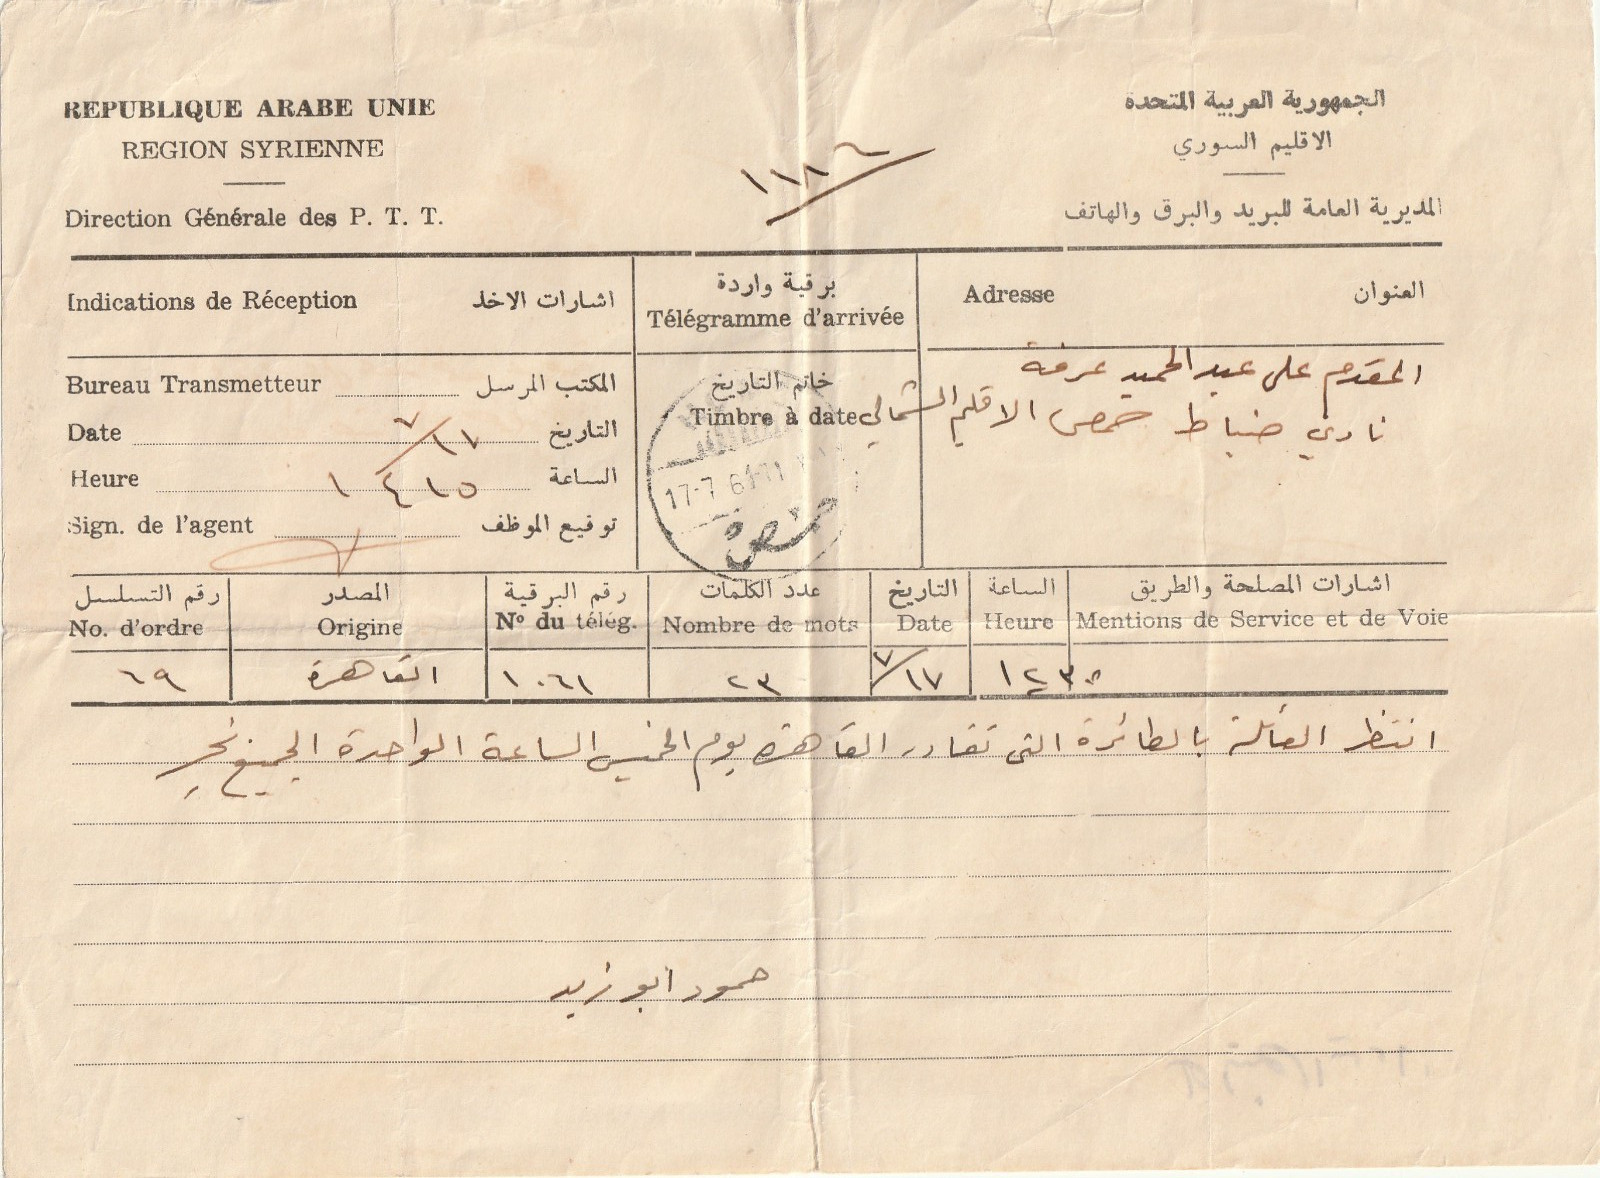 REPUBLIQUE ARABE UNIE
REGION SYRIENNE
Direction Générale des P. T. T.
الجمهورية العربية المتحدة
الاقليم السوري
المديرية العامة للبريد والبرق والهاتف
Indications de Réception اشارات الاخذ
برقية واردة
Télégramme d'arrivée
Adresse العنوان
Bureau Transmetteur المكتب المرسل
Date ٧/١٧ التاريخ
Heure ١٤١٥ الساعة
Sign. de l'agent توقيع الموظف
خاتم التاريخ
Timbre à date
17-7 61
حمص
المقدم على عبد الحميد عرفة
نادي ضباط حمص الاقليم الشمالي
رقم التسلسل المصدر رقم البرقية عدد الكلمات التاريخ الساعة اشارات المصلحة والطريق
No. d'ordre Origine Nº du télég. Nombre de mots Date Heure Mentions de Service et de Voie
٦٩ القاهرة ١٠٦١ ٢٣ ٧/١٧
انتظر العائلة بالطائرة التى تغادر القاهرة يوم الخميس الساعة الواحدة الجميع بخير
حمود ابو زيد